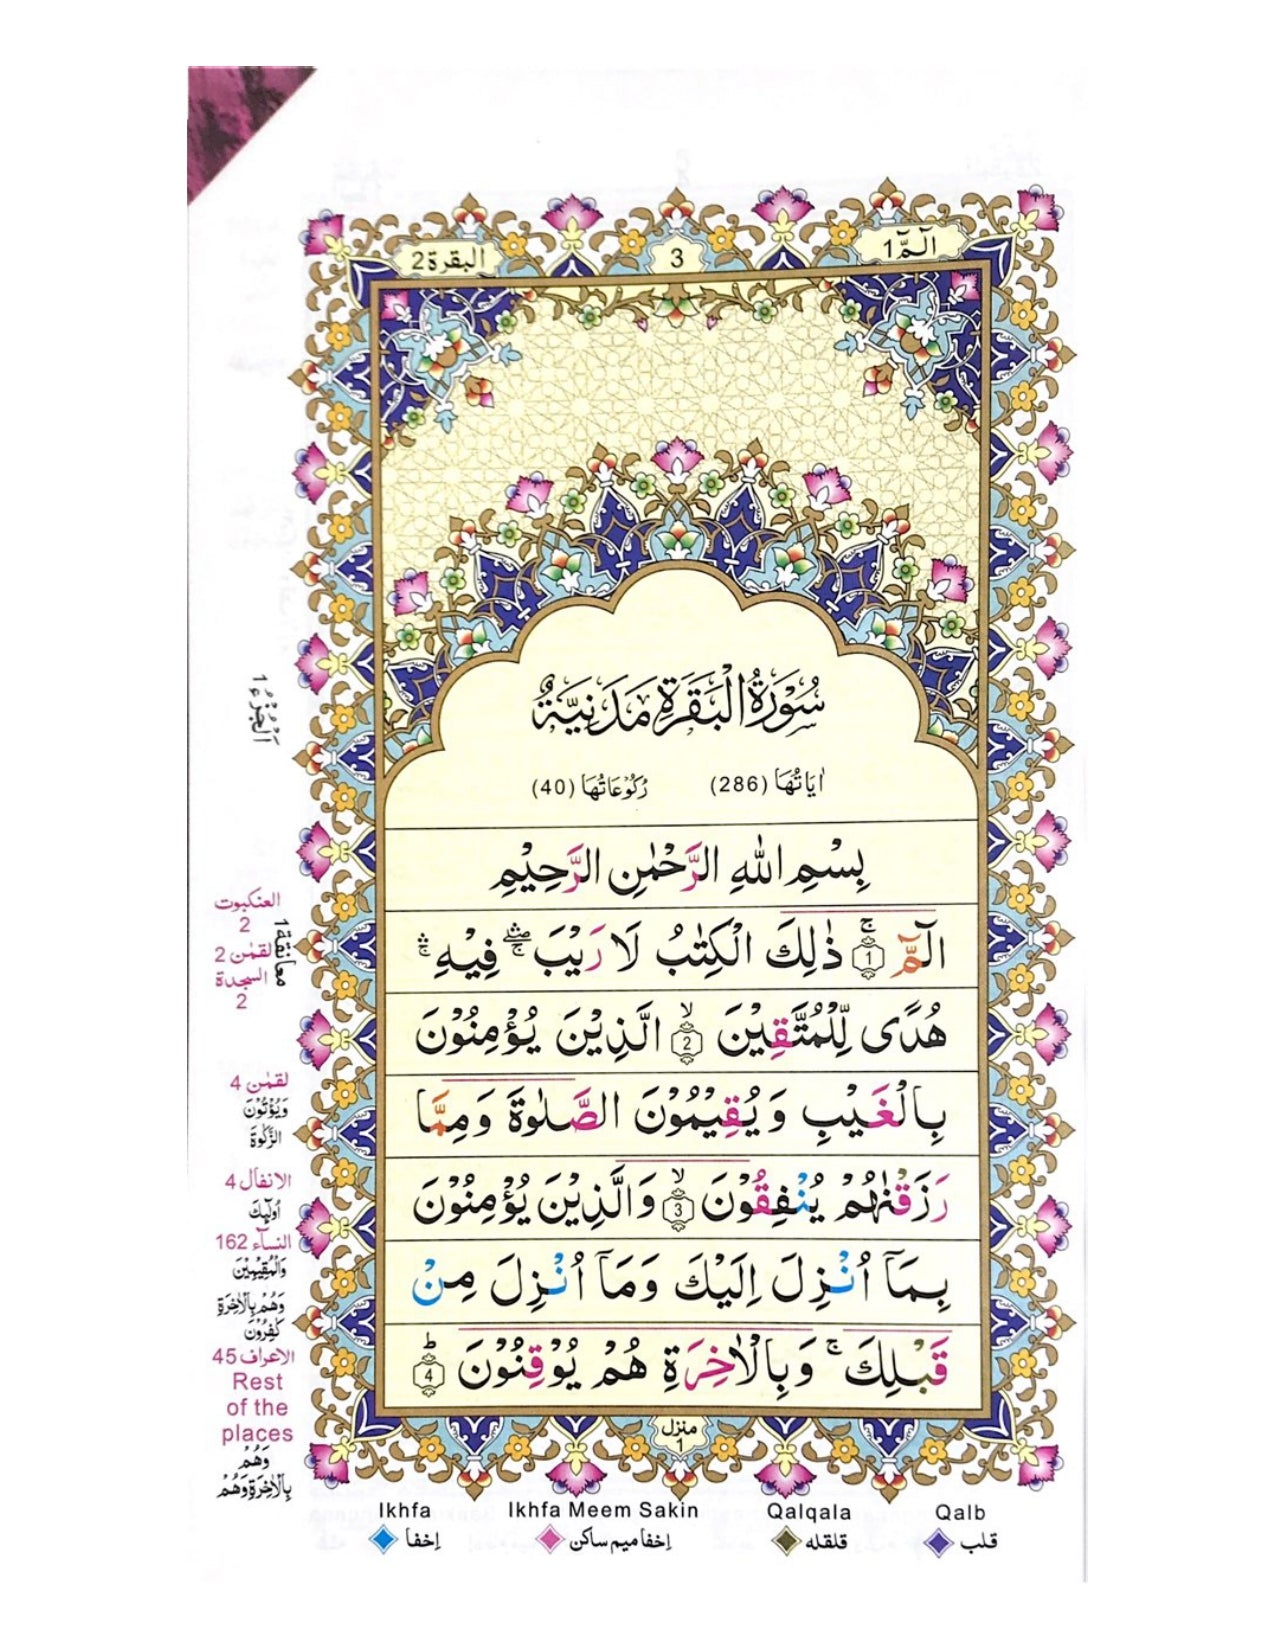 الٓمّٓ 1
3
البقرة 2
سُوْرَةُ الْبَقَرَةِ مَدَنِيَّةٌ
اٰيَاتُهَا (286) رُكُوْعَاتُهَا (40)
بِسْمِ اللهِ الرَّحْمٰنِ الرَّحِيْمِ
الٓمّٓ ۚ 1 ذٰلِكَ الْكِتٰبُ لَا رَيْبَ ۛۖ فِيْهِ ۛ
هُدًى لِّلْمُتَّقِيْنَ ۙ 2 الَّذِيْنَ يُؤْمِنُوْنَ
بِالْغَيْبِ وَيُقِيْمُوْنَ الصَّلٰوةَ وَمِمَّا
رَزَقْنٰهُمْ يُنْفِقُوْنَ ۙ 3 وَالَّذِيْنَ يُؤْمِنُوْنَ
بِمَآ اُنْزِلَ اِلَيْكَ وَمَآ اُنْزِلَ مِنْ
قَبْلِكَ ۚ وَبِالْاٰخِرَةِ هُمْ يُوْقِنُوْنَ ؕ 4
منزل
1
اَلْجُزْءُ 1
معانقة 1
العنكبوت
2
لقمٰن 2
السجدة
2
لقمٰن 4
وَيُؤْتُوْنَ
الزَّكٰوةَ
الانفال 4
اُولٰٓئِكَ
النسآء 162
وَالْمُقِيْمِيْنَ
وَهُمْ بِالْاٰخِرَةِ
كٰفِرُوْنَ
الاعراف 45
Rest
of the
places
وَهُمْ
بِالْاٰخِرَةِ وَهُمْ
Ikhfa Ikhfa Meem Sakin Qalqala Qalb
قلب قلقله اِخفا ميم ساكن اِخفا